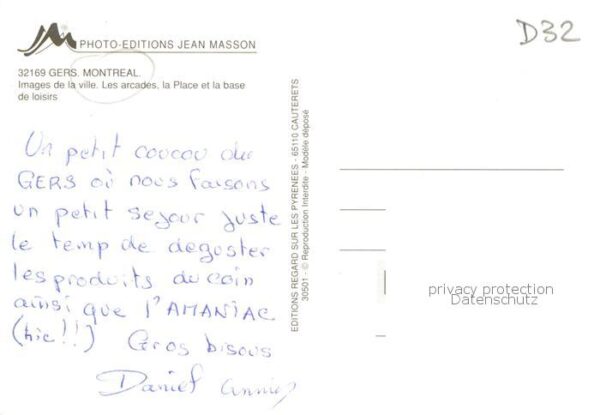 D32
JM PHOTO-EDITIONS JEAN MASSON
32169 GERS. MONTREAL.
Images de la ville. Les arcades, la Place et la base
de loisirs
Un petit coucou du
GERS où nous faisons
un petit sejour juste
le temps de deguster
les produits du coin
ainsi que l'AMANIAC
(hic!!) Gros bisous
Daniel Annie
EDITIONS REGARD SUR LES PYRENEES - 65110 CAUTERETS
30501 - © Reproduction Interdite - Modèle déposé
privacy protection
Datenschutz